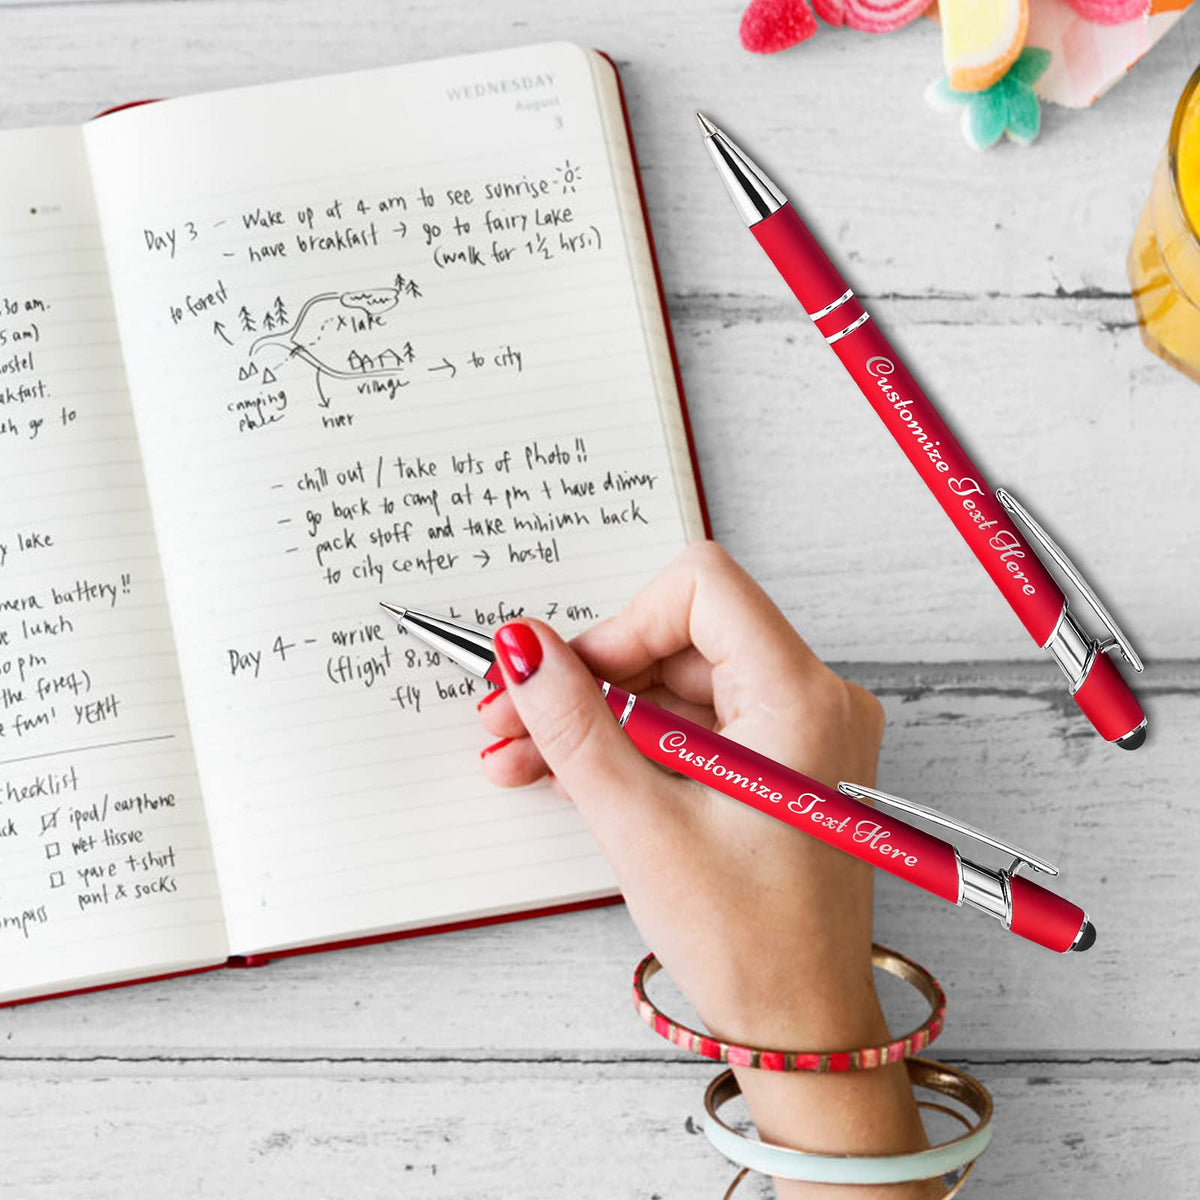 WEDNESDAY
August
3
Day 3 - Wake up at 4 am to see sunrise
- have breakfast → go to fairy Lake
(walk for 1½ hrs.)
to forest
x lake
→ to city
village
camping
river
- chill out / take lots of photo!!
- go back to camp at 4 pm + have dinner
- pack stuff and take minivan back
to city center → hostel
Day 4 - arrive before 7 am.
(flight 8.30
fly back
.30 am.
5 am)
go to
lake
battery!!
lunch
pm
the forest)
fun! YEAH
checklist
ipod/ earphone
wet tissue
spare t-shirt
pant & socks
Customize Text Here
Customize Text Here